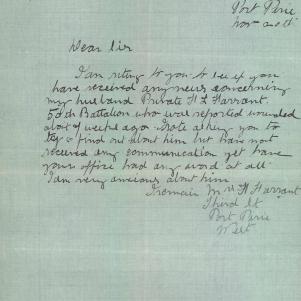 Port Pirie
Nov
Dear Sir
I am riting to you to see if you
have received any news concerning
my husband Private H L Farrant.
50th Battalion who was reported wounded
about 7 weeks ago I rote asking you to
try & find out about him but have not
received any communication yet have
your office had any word at all.
I am very anxious about him
I remain Mrs H Farrant
Third St
Port Pirie
West